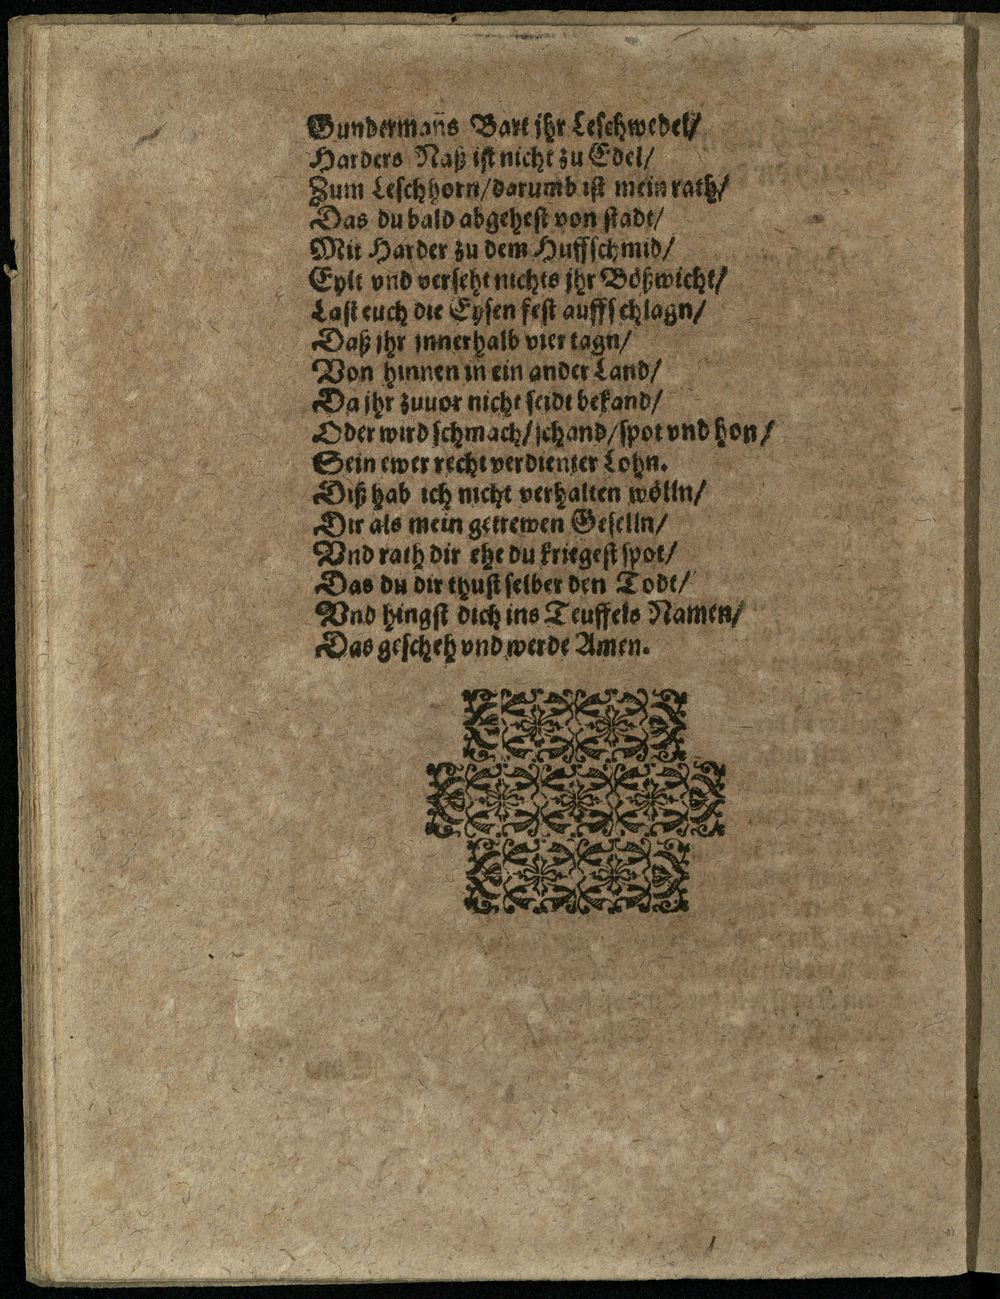 Gundermañs Bart jhr Leschwedel/
Harders Naß ist nicht zu Edel/
Zum Leschhorn/darumb ist mein rath/
Das du bald abgehest von stadt/
Mit Harder zu dem Huffschmid/
Eylt vnd verseht nichts jhr Bößwicht/
Last euch die Eysen fest auffschlagn/
Daß jhr jnnerhalb vier tagn/
Von hinnen in ein ander Land/
Da jhr zuuor nicht seidt bekand/
Oder wird schmach/schand/spot vnd hon/
Sein ewer recht verdienter Lohn.
Diß hab ich nicht verhalten wölln/
Dir als mein getrewen Geselln/
Vnd rath dir ehe du kriegest spot/
Das du dir thust selber den Todt/
Vnd hingst dich ins Teuffels Namen/
Das gescheh vnd werde Amen.